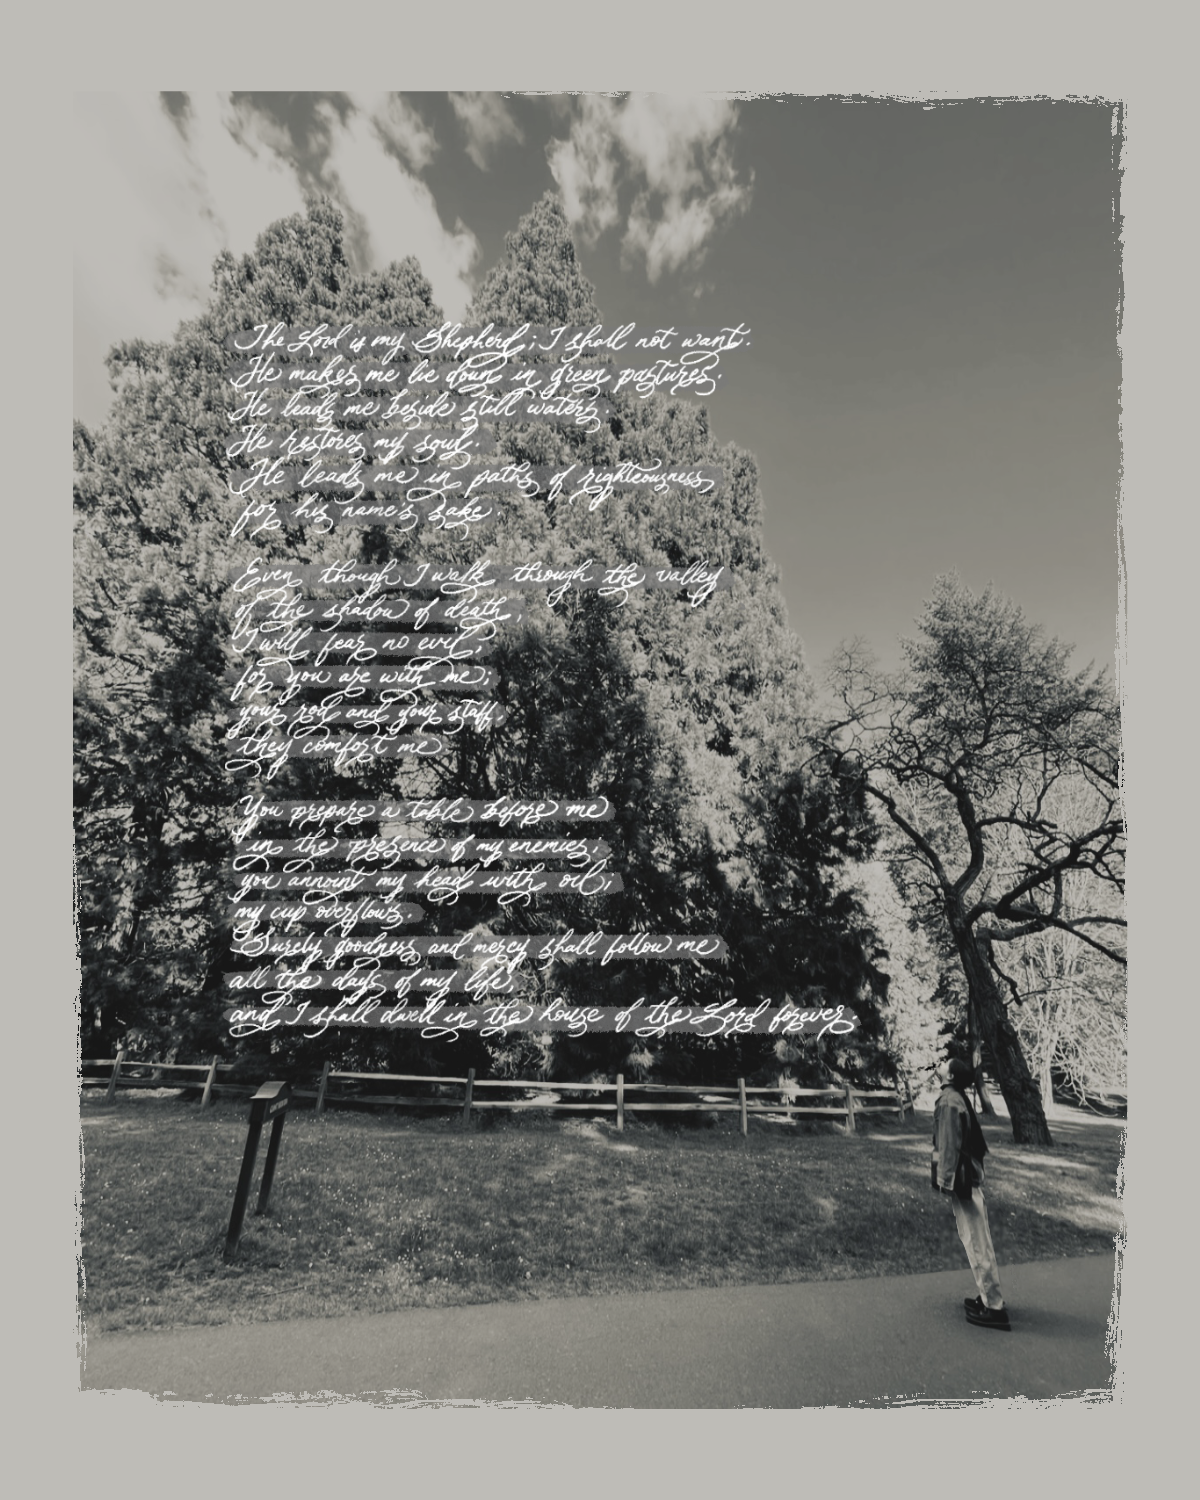 The Lord is my Shepherd; I shall not want.
He makes me lie down in green pastures.
He leads me beside still waters.
He restores my soul.
He leads me in paths of righteousness
for his name's sake.
Even though I walk through the valley
of the shadow of death,
I will fear no evil;
for you are with me;
your rod and your staff,
they comfort me
You prepare a table before me
in the presence of my enemies;
you annoint my head with oil;
my cup overflows.
Surely goodness and mercy shall follow me
all the days of my life,
and I shall dwell in the house of the Lord forever.